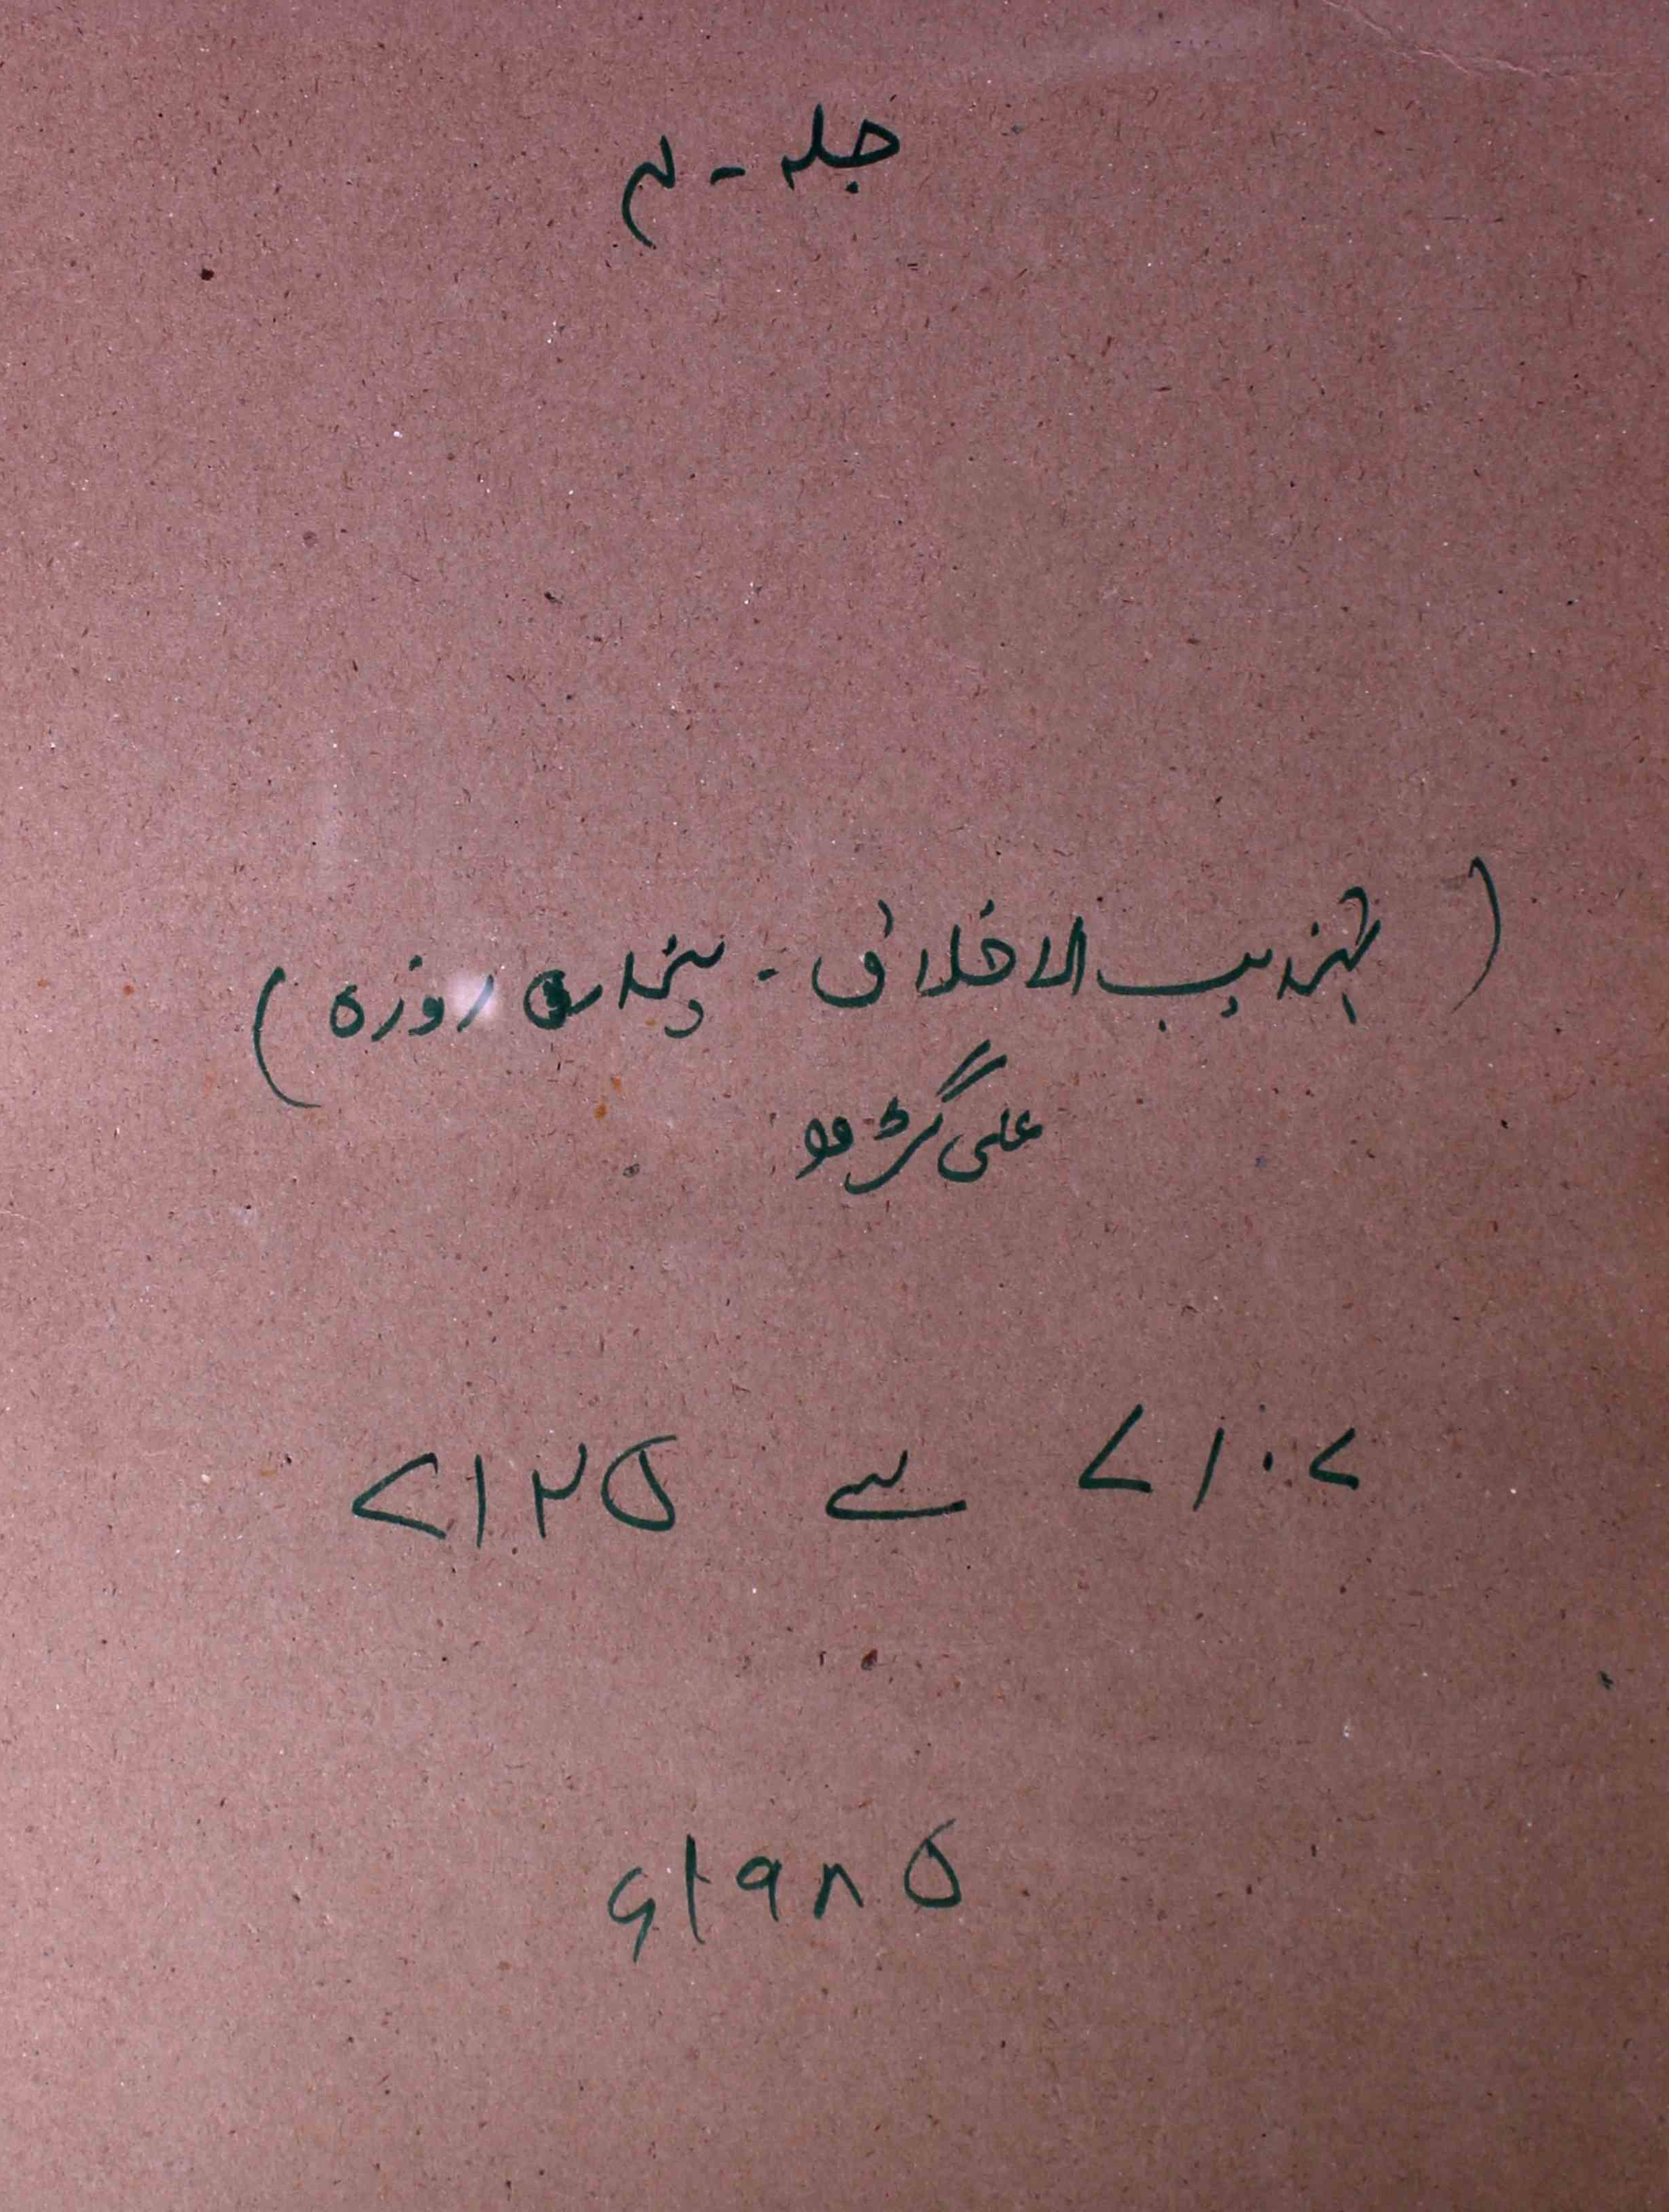 جلد - ۴
(تہذیب الاخلاق - پندرہ روزہ)
علی گڑھ
۷۱۰۷ سے ۷۱۲۵
۱۹۸۵ء